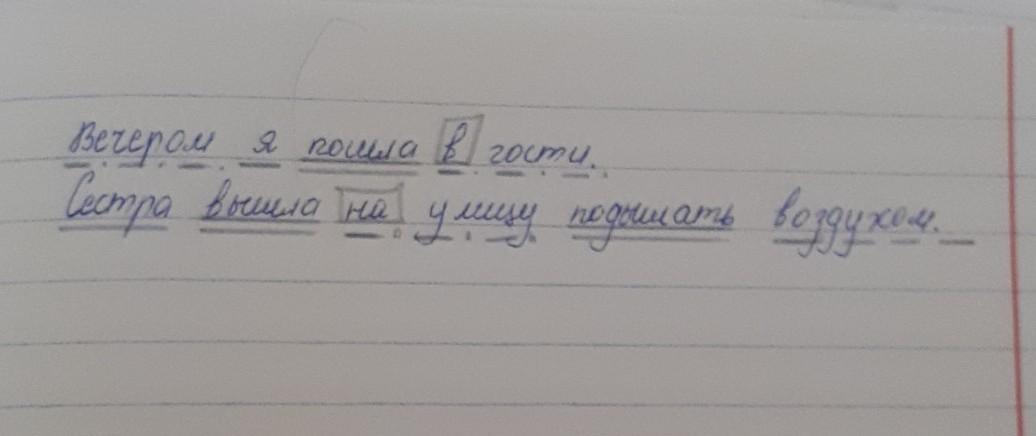 Вечером я пошла в гости.
Сестра вышла на улицу подышать воздухом.